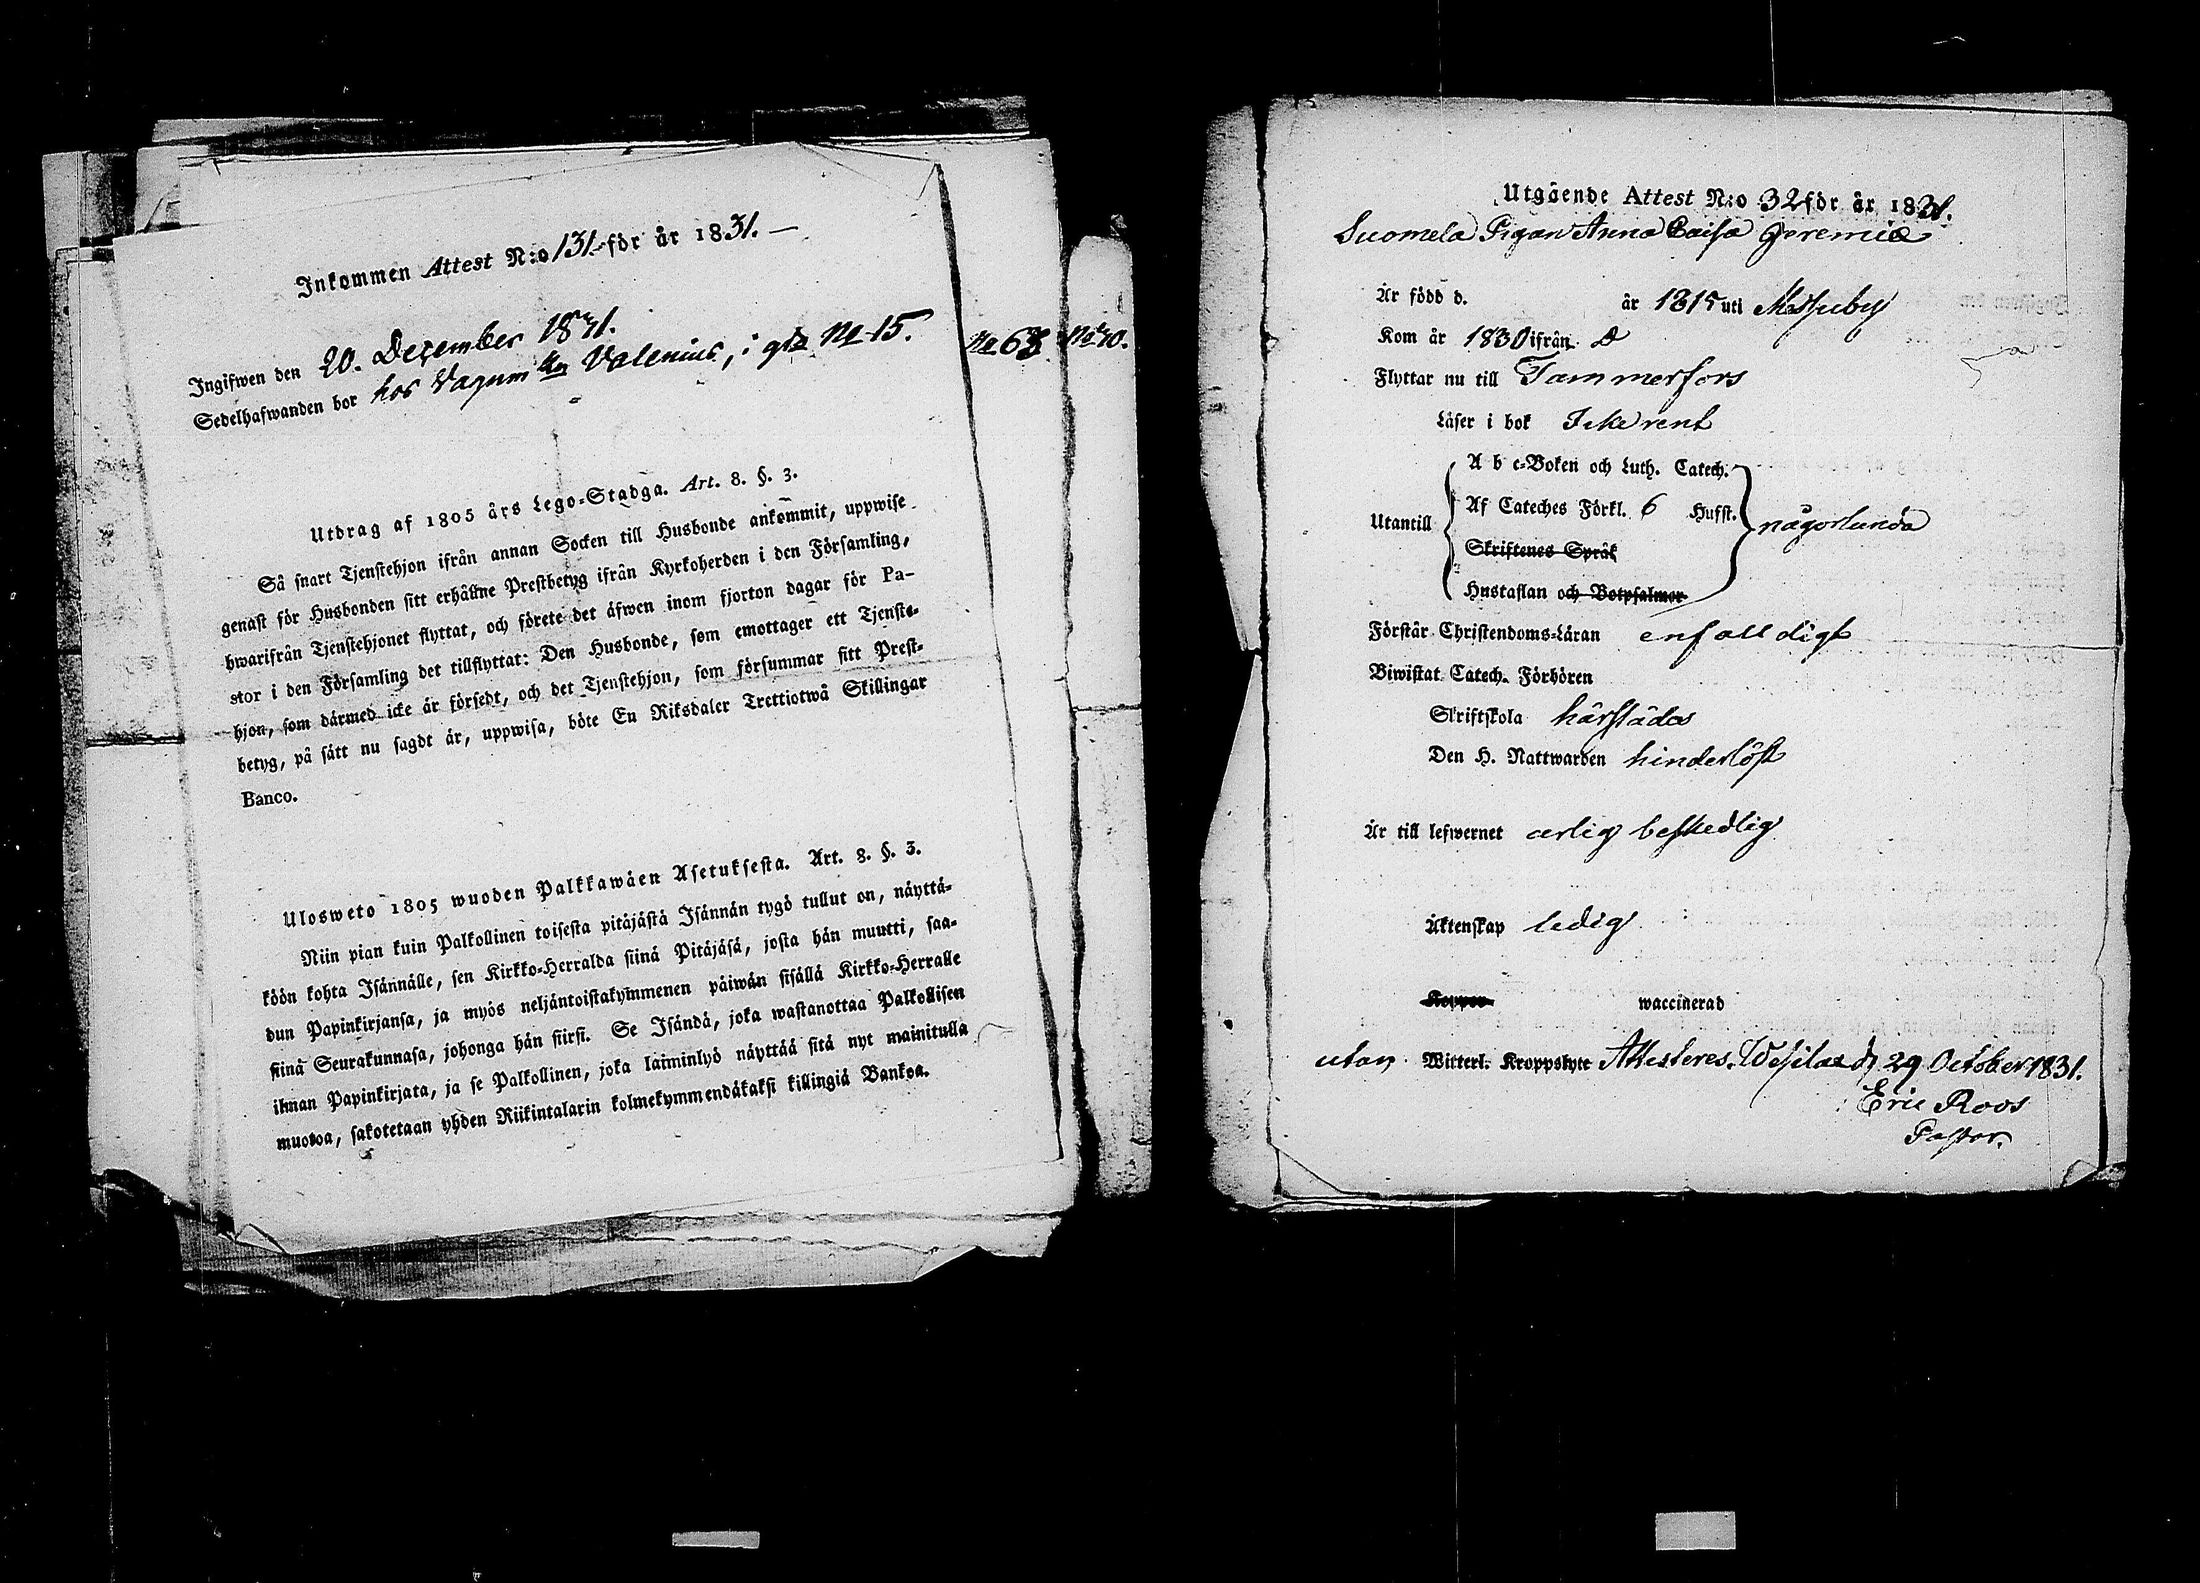 Inkommen Attest N:o 131. för år 1831. —
Ingifwen den 20. December 1831.
Sedelhafwanden bor hos Vagnm:kn Valenius, i gl: No 15.
No 63
No 70.
Utdrag af 1805 års Lego-Stadga. Art. 8. §. 3.
Så snart Tjenstehjon ifrån annan Socken till Husbonde ankommit, uppwise
genast för Husbonden sitt erhållne Prestbetyg ifrån Kyrkoherden i den Församling,
hwarifrån Tjenstehjonet flyttat, och förete det äfwen inom fjorton dagar för Pa-
stor i den Församling det tillflyttat: Den Husbonde, som emottager ett Tjenste-
hjon, som därmed icke är försedt, och det Tjenstehjon, som försummar sitt Prest-
betyg, på sätt nu sagdt är, uppwisa, böte En Riksdaler Trettiotwå Skillingar
Banco.
Ulosweto 1805 wuoden Palkkawäen Asetuksesta. Art. 8. §. 3.
Niin pian kuin Palkollinen toisesta pitäjästä Isännän tygö tullut on, näyttä-
köön kohta Isännälle, sen Kirkko-Herralda siinä Pitäjäsä, josta hän muutti, saa-
dun Papinkirjansa, ja myös neljäntoistakymmenen päiwän sisällä Kirkko-Herralle
siinä Seurakunnasa, johonga hän siirsi. Se Isändä, joka wastanottaa Palkollisen
ilman Papinkirjata, ja se Palkollinen, joka laiminlyö näyttää sitä nyt mainitulla
muotoa, sakotetaan yhden Riikintalarin kolmekymmendäkaksi killingiä Bankoa.
Utgående Attest N:o 32 för år 1831.
Suomela Pigan Anna Caisa Jeremiæ
Är född d. år 1815 uti Messuby
Kom år 1830 ifrån D
Flyttar nu till Tammerfors
Läser i bok Icke rent
A b c-Boken och Luth. Catech.
Utantill Af Cateches Förkl. 6 Husst. någorlunda
Skriftenes Språk
Hustaflan och Botpsalmer
Förstår Christendoms-Läran enfalldigt
Biwistat Catech. Förhören
Skriftskola härstädes
Den H. Nattwarden hinderlöst
Är till lefwernet ærlig beskedlig
Äktenskap ledig
Koppor waccinerad
utan Witterl. Kroppslyte Attesteras. Wesilax d. 29 October 1831.
Eric Roos
Pastor.